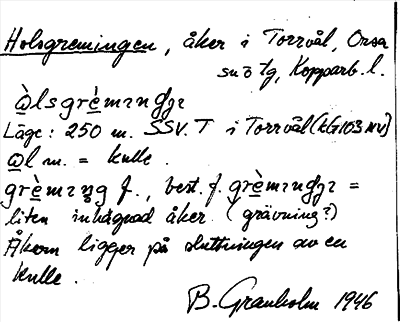 Holsgremingen, åker i Torrvål, Orsa
sn o tg, Kopparb. l.
Läge: 250 m. SSV. T i Torrvål (kG103 NV)
m. = kulle.
f., best. f. =
liten inhägnad åker. (grävning?)
Åkern ligger på sluttningen av en
kulle.
B. Granholm 1946